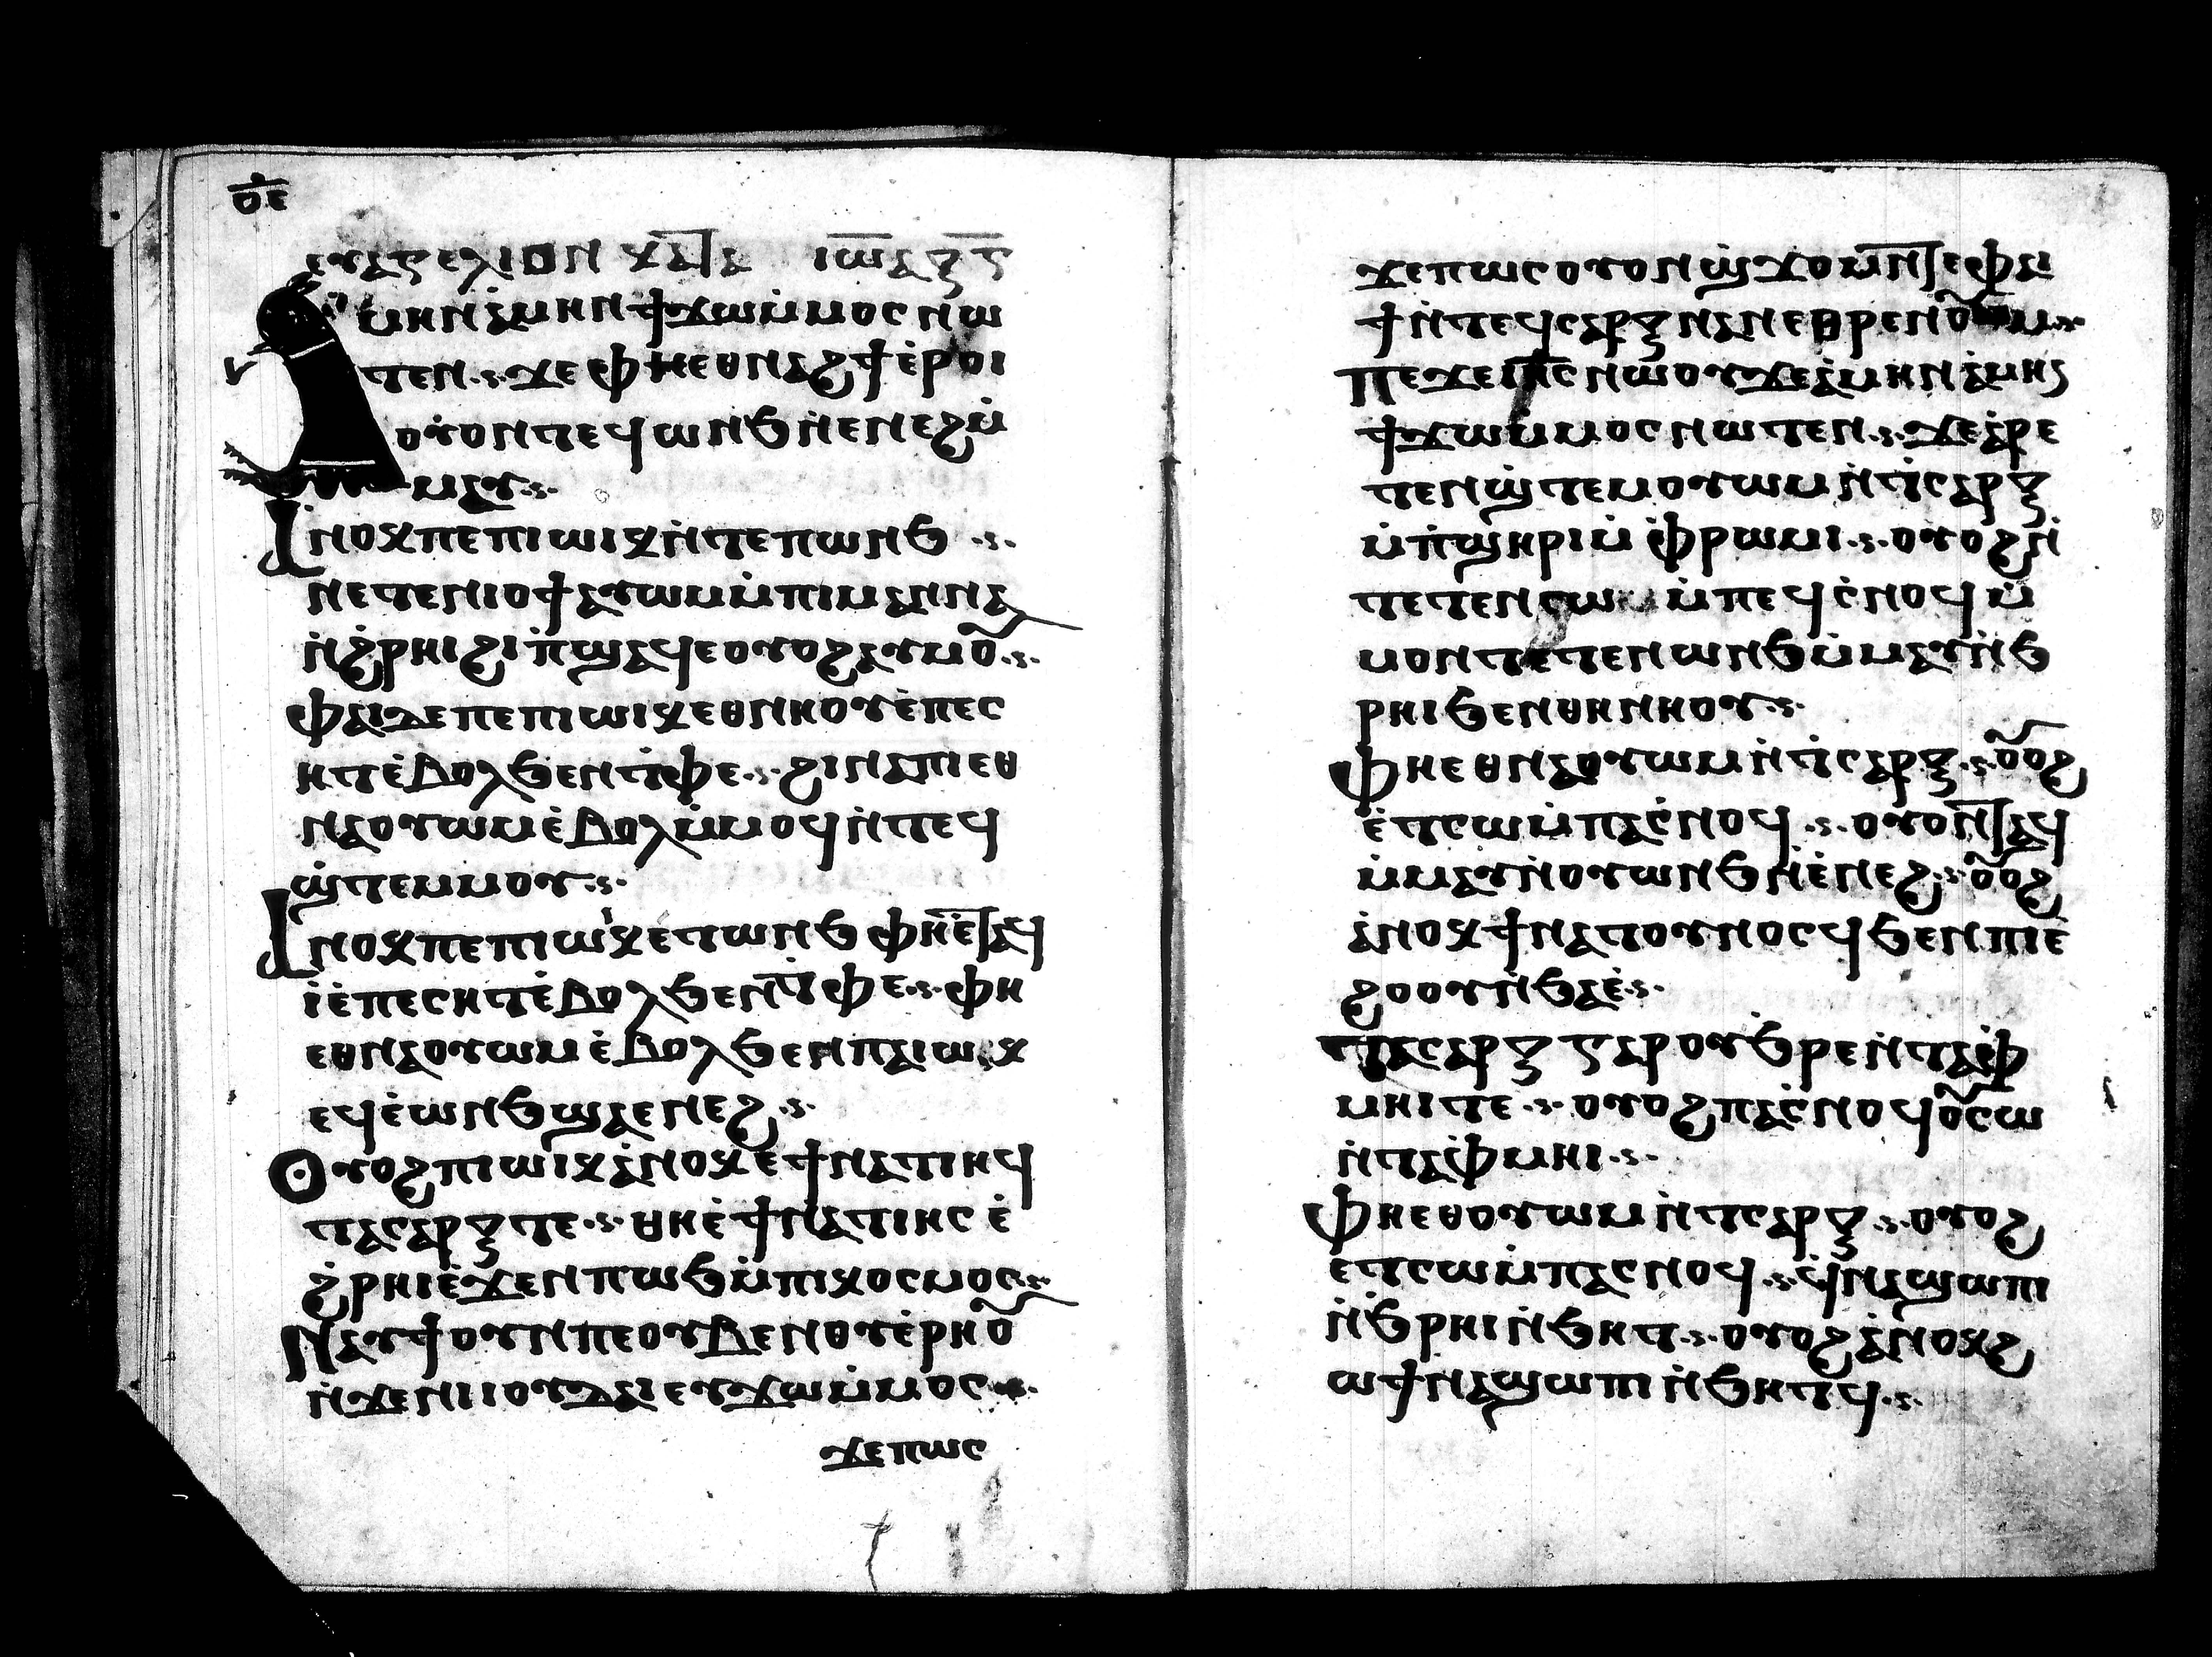 ⲟ̅ⲉ̅
ⲉⲩⲁⲅⲅⲉⲗⲓⲟⲛ ⲕⲁⲧⲁ ⲓⲱⲁ
ⲙⲏⲛⲁ̇ⲙⲏⲛϯϫⲱⲙ̇ⲙⲟⲥⲛⲱ
ⲧⲉⲛ·ⲥ·ϫⲉⲫⲏⲉⲑⲛⲁϩϯⲉ̇ⲣⲟⲓ
ⲟⲩ̇ⲟⲛⲧⲉϥⲱⲛϧⲛ̇ⲉⲛⲉϩⲙ̇
ⲙⲁⲩ·ⲥ·
Ⲁⲛⲟⲕⲡⲉⲡⲓⲱⲓⲕⲛ̇ⲧⲉⲡⲱⲛϧ·ⲥ·
ⲛⲉⲧⲉⲛⲓⲟϯⲁⲩⲱⲙⲙ̇ⲡⲓⲙⲁⲛⲛⲁ
ⲛ̇ϩ̇ⲣⲏⲓϩⲓⲡ̇ϣⲁϥⲉⲟⲩⲟϩⲁⲩⲙⲟⲩ·ⲥ·
ⲫⲁⲓⲇⲉⲡⲉⲡⲓⲱⲓⲕⲉⲑⲛⲏⲟⲩⲉ̇ⲡⲉⲥ
ⲏⲧⲉ̇ⲃⲟⲗϧⲉⲛⲧ̇ⲫⲉ·ⲥ·ϩⲓⲛⲁⲡⲓⲉⲑ
ⲛⲁⲟⲩⲱⲙⲉ̇ⲃⲟⲗⲙ̇ⲙⲟϥⲛ̇ⲧⲉϥ
ϣ̇ⲧⲉⲙⲙⲟⲩ·ⲥ·
Ⲁⲛⲟⲕⲡⲉⲡⲓⲱⲓⲕⲉⲧⲱⲛϧⲫⲏⲉ̇ⲧⲁϥ
ⲓ̇ⲉ̇ⲡⲉⲥⲏⲧⲉ̇ⲃⲟⲗϧⲉⲛⲧ̇ⲫⲉ·ⲥ·ⲫⲏ
ⲉⲑⲛⲁⲟⲩⲱⲙⲉ̇ⲃⲟⲗϧⲉⲛⲡⲁⲓⲱⲓⲕ
ⲉϥⲉ̇ⲱⲛϧϣⲁⲉⲛⲉϩ·ⲥ·
Ⲟⲩⲟϩⲡⲓⲱⲓⲕⲁ̇ⲛⲟⲕⲉϯⲛⲁⲧⲏⲓϥ
ⲧⲁⲥⲁⲣⲝⲧⲉ·ⲥ·ⲑⲏⲉ̇ϯⲛⲁⲧⲓⲏⲥⲉ̇
ϩ̇ⲣⲏⲓⲉ̇ϫⲉⲛⲡⲱϧⲙ̇ⲡⲓⲕⲟⲥⲙⲟⲥ·ⲥ·
Ⲛⲁⲩϯⲟⲩⲛⲡⲉⲟⲩⲃⲉⲛⲟⲩⲉ̇ⲣⲏⲟⲩ
ⲛ̇ϫⲉⲛⲓⲓⲟⲩⲇⲁⲓⲉⲩϫⲱⲙ̇ⲙⲟⲥ·ⲥ·
ϫⲉⲡⲱⲥ
ϫⲉⲡⲱⲥⲟⲩⲟⲛϣ̇ϫⲟⲙⲛ̇ⲧⲉⲫⲁⲓ
ϯⲛ̇ⲧⲉϥⲥⲁⲣⲝⲛⲁⲛⲉⲑⲣⲉⲛⲟⲩⲱⲙ·ⲥ·
Ⲡⲉϫⲉⲓⲏ̅ⲥ̅ⲛⲱⲟⲩϫⲉⲁ̇ⲙⲏⲛⲁ̇ⲙⲏⲛ
ϯϫⲱⲙ̇ⲙⲟⲥⲛⲱⲧⲉⲛ·ⲥ·ϫⲉⲁ̇ⲣⲉ
ⲧⲉⲛϣ̇ⲧⲉⲙⲟⲩⲱⲙⲛ̇ⲧ̇ⲥⲁⲣⲝ
ⲙ̇ⲡ̇ϣⲏⲣⲓⲙ̇ⲫ̇ⲣⲱⲙⲓ·ⲥ·ⲟⲩⲟϩⲛ̇
ⲧⲉⲧⲉⲛⲥⲱ ⲙ̇ⲡⲉϥⲥ̇ⲛⲟϥⲙ̇
ⲙⲟⲛⲧⲉⲧⲉⲛⲱⲛϧⲙ̇ⲙⲁⲩⲛ̇ϧ
ⲣⲏⲓϧⲉⲛⲑⲏⲛⲏⲟⲩ·ⲥ·
Ⲫⲏⲉⲑⲛⲁⲟⲩⲱⲙⲛ̇ⲧ̇ⲥⲁⲣⲝ·ⲥ·ⲟⲩⲟϩ
ⲉ̇ⲧⲥⲱⲙ̇ⲡⲁⲥ̇ⲛⲟϥ·ⲥ·ⲟⲩⲟⲛⲧⲁϥ
ⲙ̇ⲙⲁⲩⲛ̇ⲟⲩⲱⲛϧⲛ̇ⲉ̇ⲛⲉϩ·ⲥ·ⲟⲩⲟϩ
ⲁ̇ⲛⲟⲕϯⲛⲁⲧⲟⲩⲛⲟⲥϥϧⲉⲛⲡⲓⲉ̇
ϩⲟⲟⲩⲛ̇ϧⲁⲉ̇·ⲥ·
Ⲧⲁⲥⲁⲣⲝⲅⲁⲣⲟⲩϧ̇ⲣⲉⲛ̇ⲧⲁⲫ̇
ⲙⲏⲓⲧⲉ·ⲥ·ⲟⲩⲟϩⲡⲁⲥ̇ⲛⲟϥⲟⲩⲥⲱ
ⲛ̇ⲧⲁⲫ̇ⲙⲏⲓ·ⲥ·
Ⲫⲏⲉⲑⲟⲩⲱⲙⲛ̇ⲧⲥⲁⲣⲝ·ⲥ·ⲟⲩⲟϩ
ⲉⲧⲥⲱⲙ̇ⲡⲁⲥⲛⲟϥ·ⲥ·ϥ̇ⲛⲁϣⲱⲡⲓ
ⲛ̇ϧ̇ⲣⲏⲓⲛ̇ϧⲏⲧ·ⲥ·ⲟⲩⲟϩⲁ̇ⲛⲟⲕϩ
ⲱϯⲛⲁϣⲱⲡⲓⲛ̇ϧⲏⲧϥ·ⲥ·